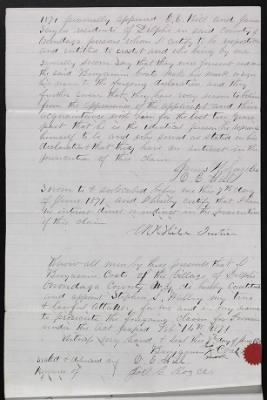 1871 personally appeared C. E. Hill and James
Taylor residents of Delphi in said county of
Onondaga persons whom I certify to be respectable
and entitled to credit and who being by me
severally sworn say that they were present and saw
the said Benjamin Coats make his mark
to the foregoing declaration and they
further swear that they have every reason to believe
from the appearance of the applicant and their
acquaintance with him for the last two years
past that he is the identical person he represents
himself to be and
declaration that they have no interest in the
prosecution of this claim
C. E. Hill
Sworn to & subscribed before me this 7th day
of June 1871 and I hereby certify that I have
no interest direct or indirect in the prosecution
of this claim
Justice
Know all men by these presents that I
Benjamin Coats of the village of Delphi
Onondaga County N.Y. do hereby constitute
and appoint Stephen my true
& lawful Attorney for me and in my name
to prosecute the foregoing Claim for Pension
under the act passed Feb 14th 1871
Witness my hand & seal this 7th day of June
Benjamin Coats
mark
Sealed & delivered in
presence of
C. E. Hill